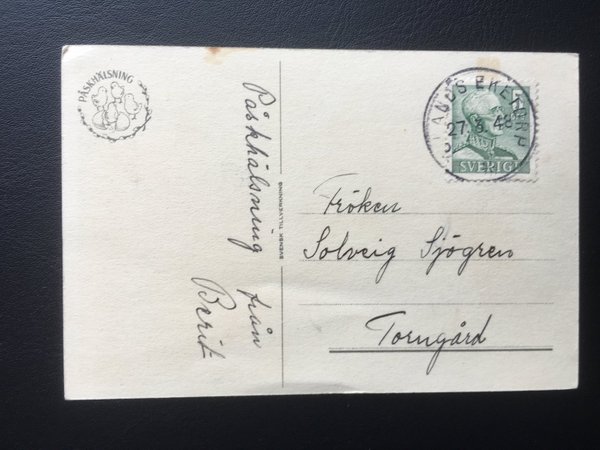 PÅSKHÄLSNING
Påskhälsning från
Berit
SVENSK TILLVERKNING
27.3.48
SVERIGE
Fröken
Solveig Sjögren
Torngård